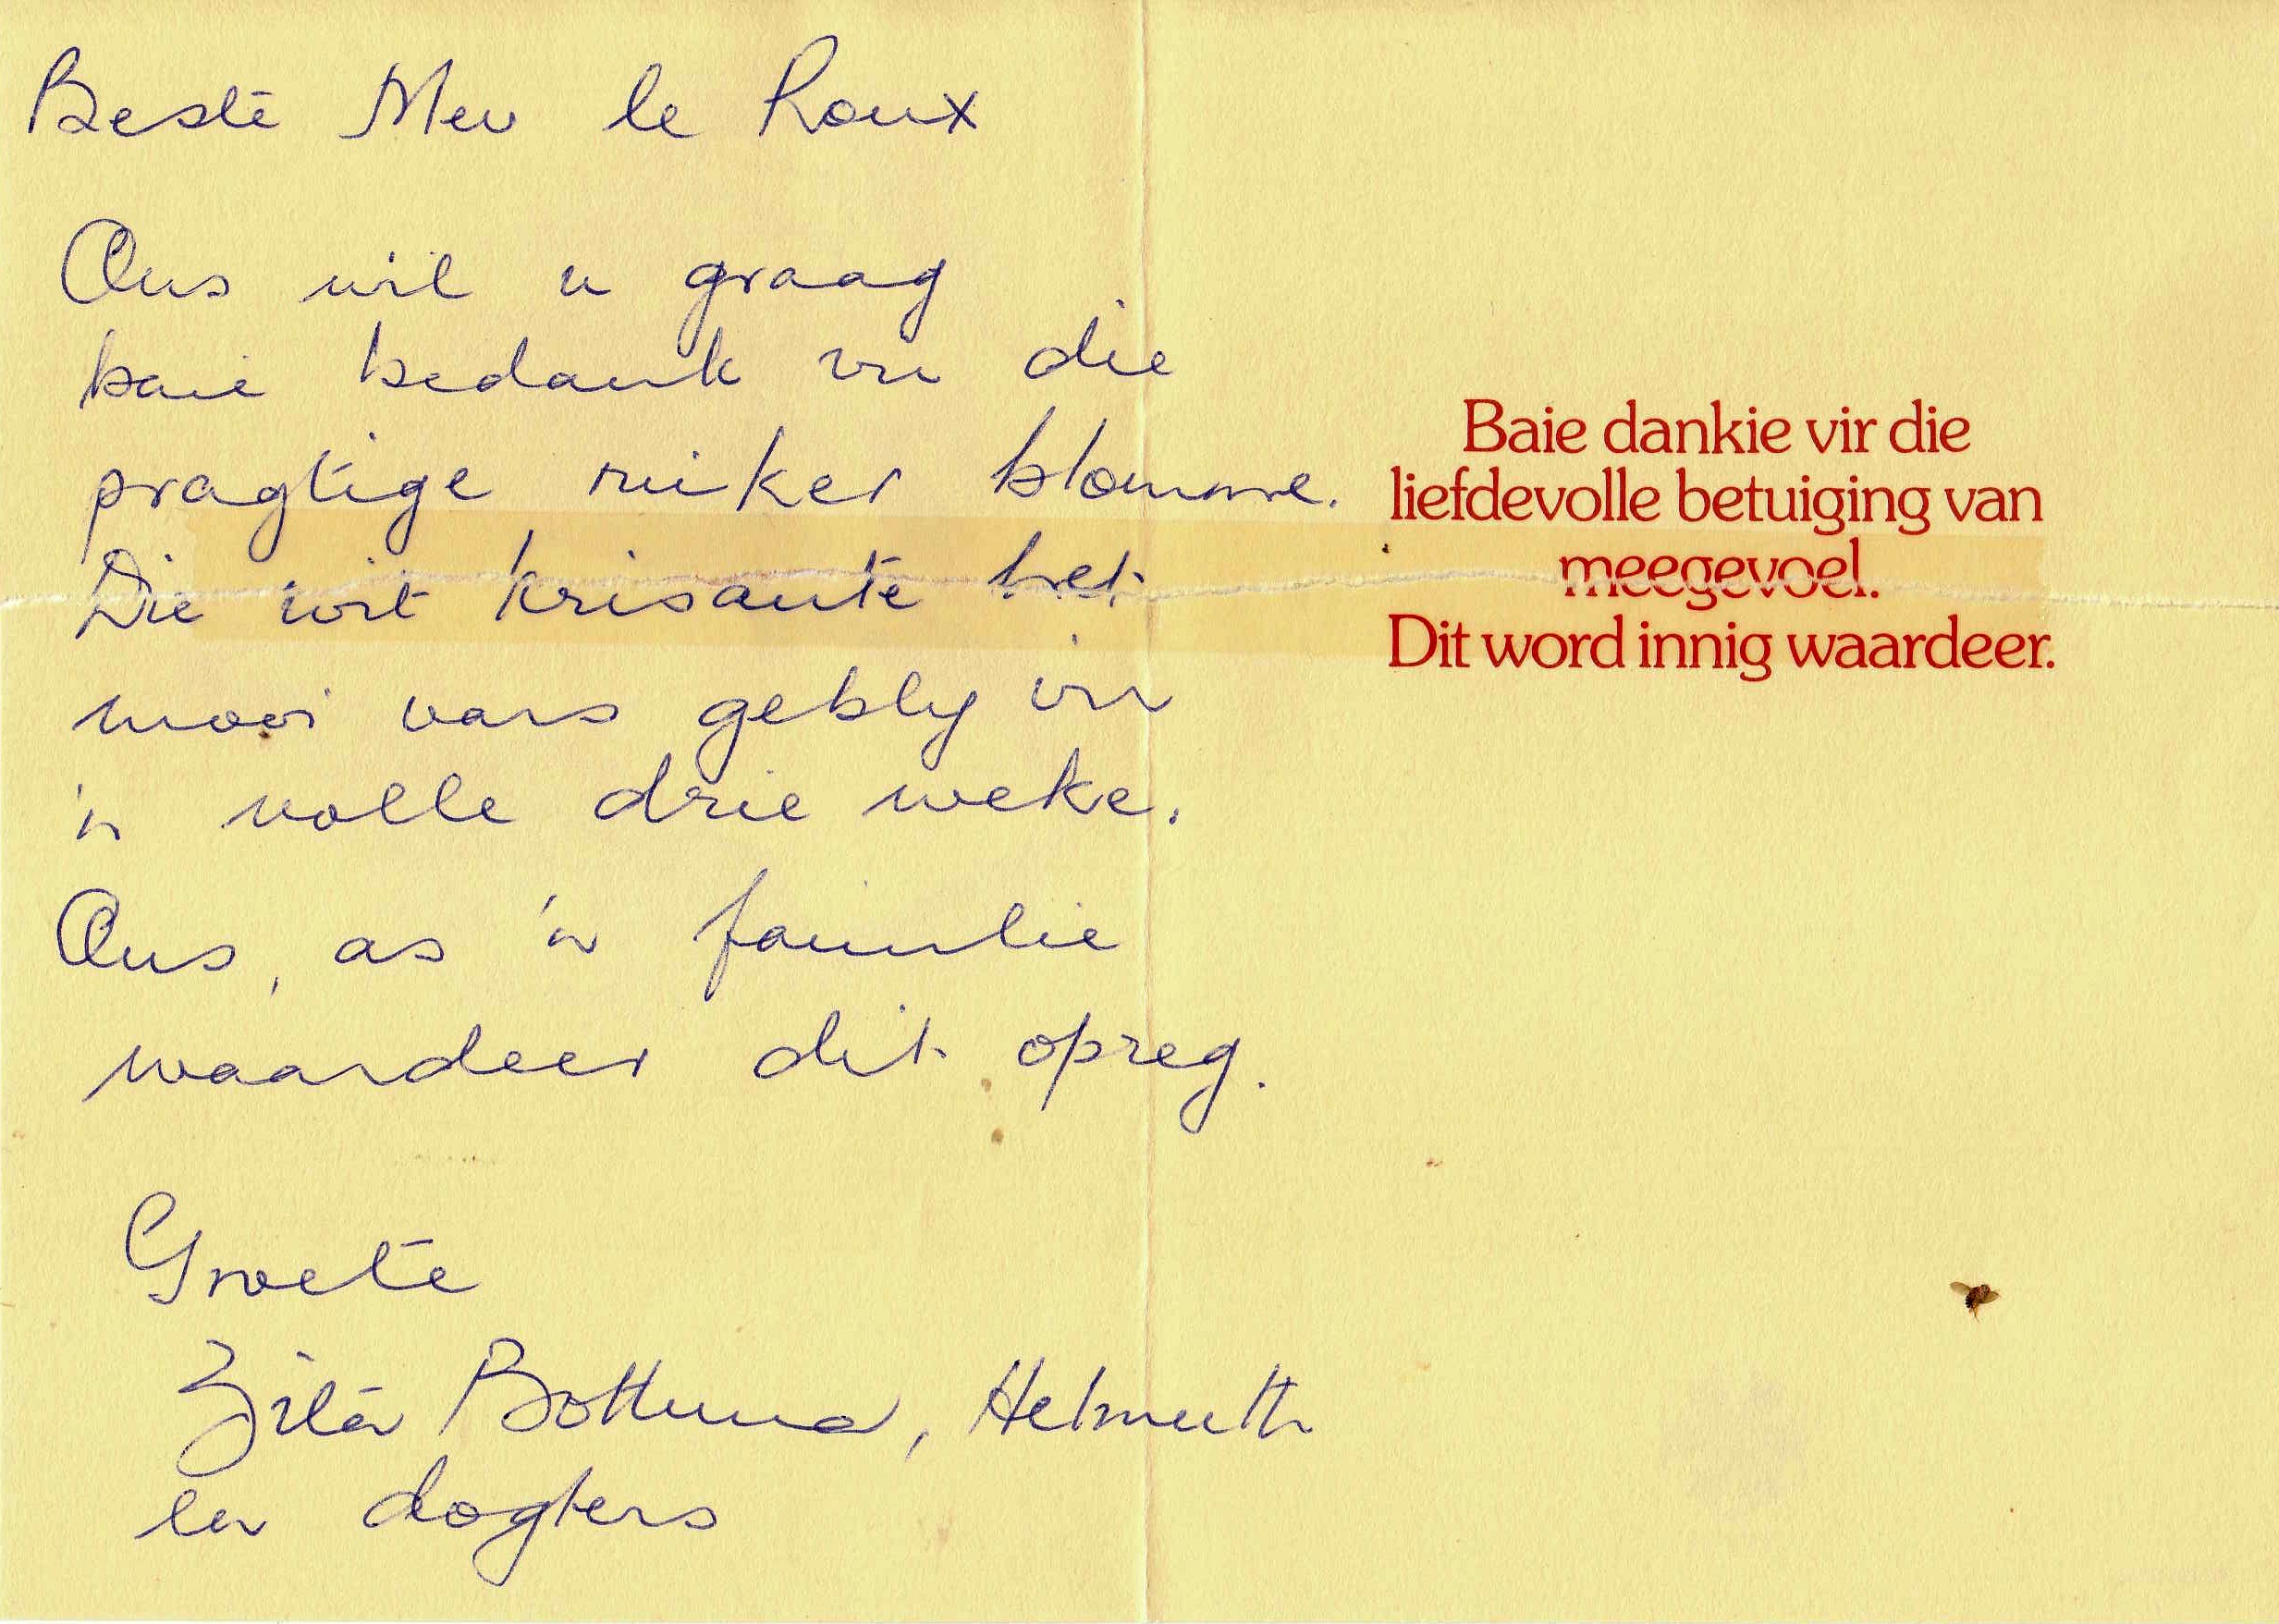 Beste Mev le Roux
Ons wil u graag
baie bedank vir die
pragtige ruiker blomme.
Die wit krisante het
mooi vars gebly vir
'n volle drie weke.
Ons, as 'n familie
waardeer dit opreg.
Groete
Zita Bothma, Helmuth
en dogters
Baie dankie vir die
liefdevolle betuiging van
meegevoel.
Dit word innig waardeer.